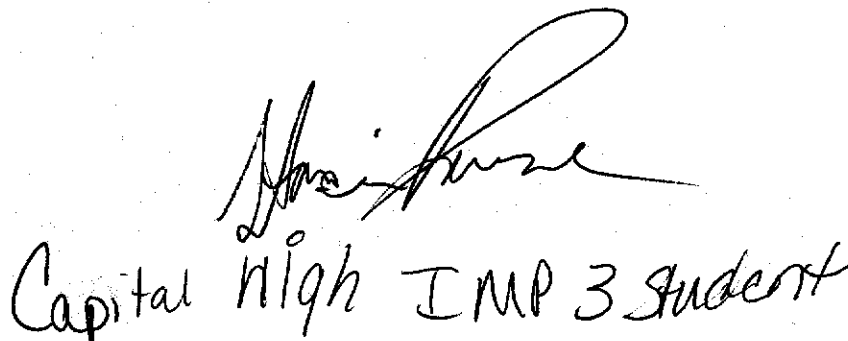 Capital High IMP 3 student